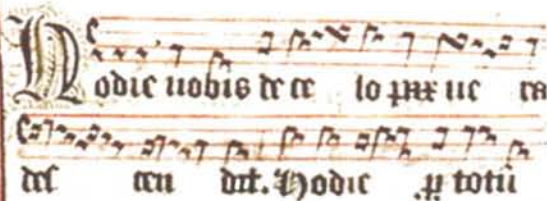 Hodie nobis de ce lo pax ue ra
des cen dit. Hodie ꝑ totū